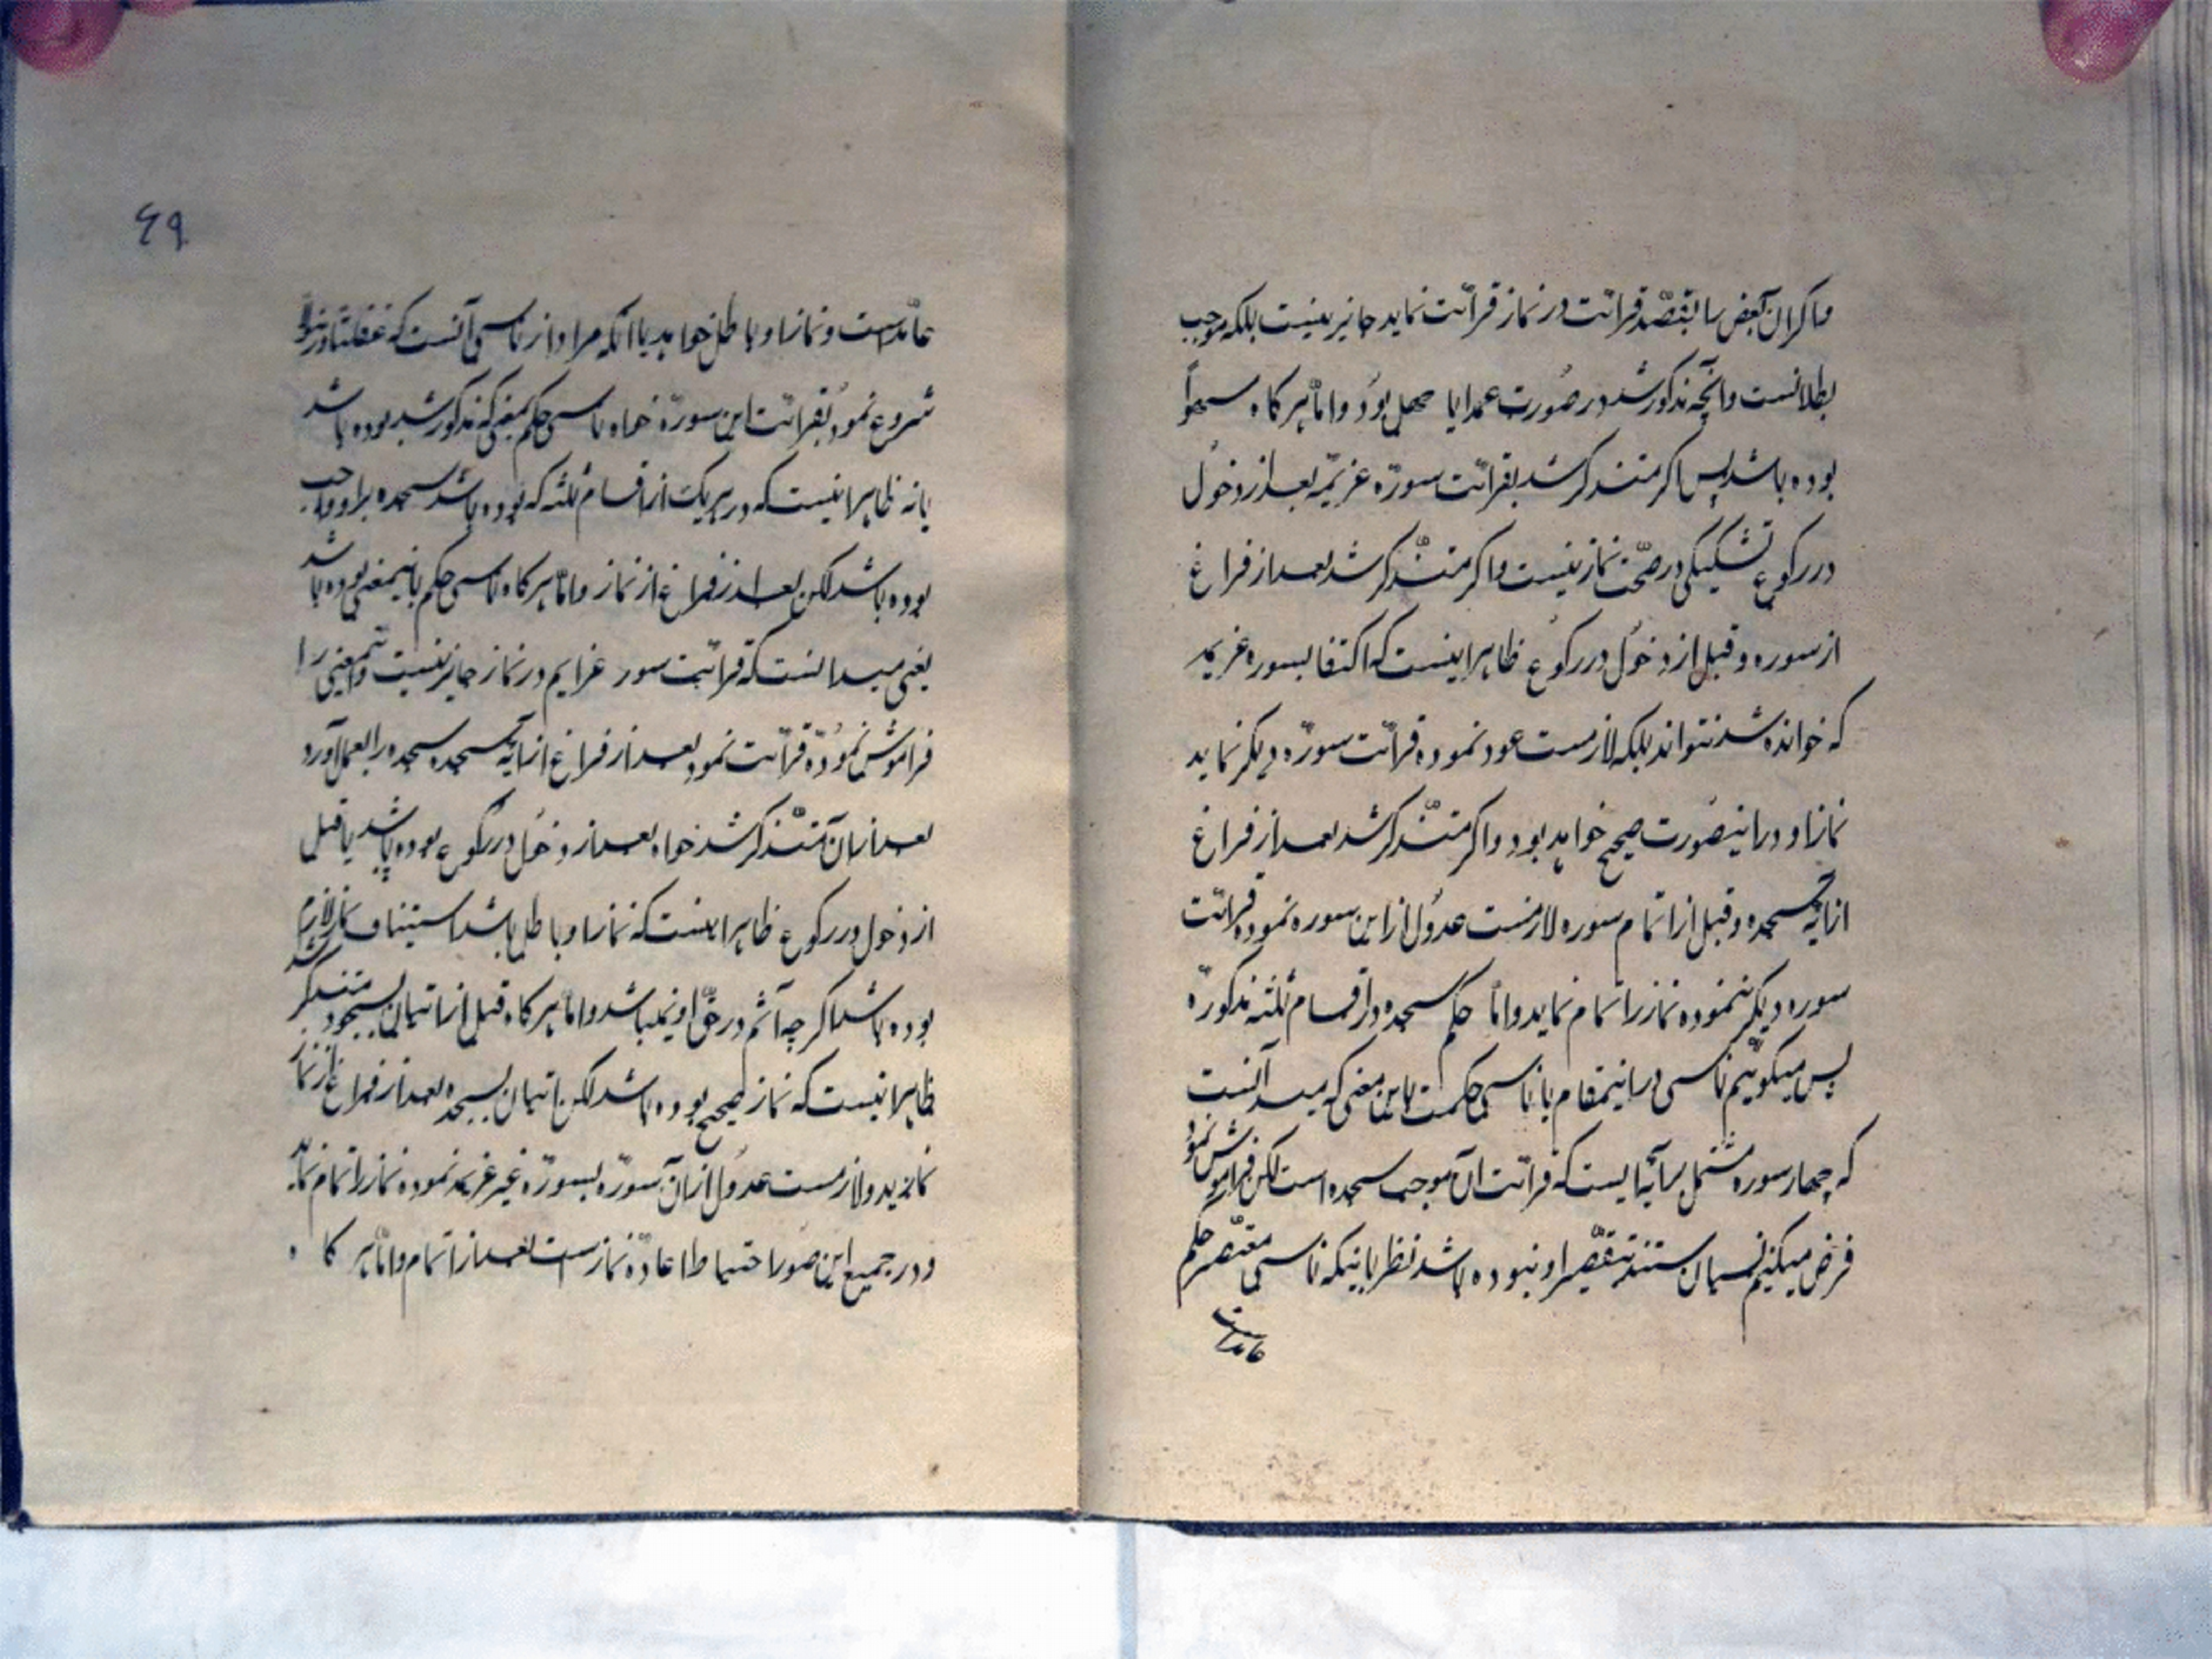 و اگر ان بعض را بقصد قرائت در نماز قرائت نماید جایز نیست بلکه موجب
بطلانست و آنچه مذکور شد در صورت عمد یا جهل بود و امّا هرگاه سهواً
بوده باشد پس اگر متذکر شد بقرائت سورهٔ عزیمه بعد از دخول
در رکوع تشکیکی در صحّت نماز نیست و اگر متذکر شد بعد از فراغ
از سوره و قبل از دخول در رکوع ظاهر اینست که اکتفا بسوره عزیمه
که خوانده شد نتواند بلکه لازمست عود نموده قرائت سورهٔ دیگر نماید
نماز او در اینصورت صحیح خواهد بود و اگر متذکر شد بعد از فراغ
از آیه سجده و قبل از اتمام سوره لازمست عدول از این سوره نموده قرائت
سوره دیگر نموده نماز را تمام نماید و امّا حکم سجده در اقسام ثلثه مذکوره
پس میگوئیم ناسی در اینمقام یا ناسی حکمست باین معنی که میدانست
که چهار سوره مشتمل بر آیهٔ ایست که قرائت آن موجب سجده است لکن فراموش نمود
فرض میکنیم نسیان مستند بتقصیر او نبوده باشد نظر باینکه ناسی مقصّر حکم
عامدست
٦٩
عامدست و نماز او باطل خواهد یا آنکه مراد از ناسی آنست که غفلتاً در نماز
شروع نمود بقرائت این سوره خواه ناسی حکم بمعنی که مذکور شد بوده باشد
یا نه ظاهر اینست که در هر یک از اقسام ثلثه که بوده باشد سجده بر او واجب
بوده باشد لکن بعد از فراغ از نماز و امّا هرگاه ناسی حکم باینمعنی بوده باشد
یعنی میدانست که قرائت سور عزایم در نماز جایز نیست و اینمعنی را
فراموش نموده قرائت نمود بعد از فراغ از آیه سجده سجده را بعمل آورد
بعد از آن متذکر شد خواه بعد از دخول در رکوع بوده باشد یا قبل
از دخول در رکوع ظاهر اینست که نماز او باطل باشد استیناف نماز لازم
بوده باشد اگر چه آثم در حقّ او نمیباشد و امّا هرگاه قبل از اتیان بسجود متذکر شد
ظاهر اینست که نماز صحیح بوده باشد لکن اتیان بسجده بعد از فراغ از نماز
نماید و لازمست عدول از آن سوره بسورهٔ غیر عزیمه نموده نماز را تمام نماید
و در جمیع این صور احتیاط اعاده نماز است بعد از اتمام و امّا هر گاه